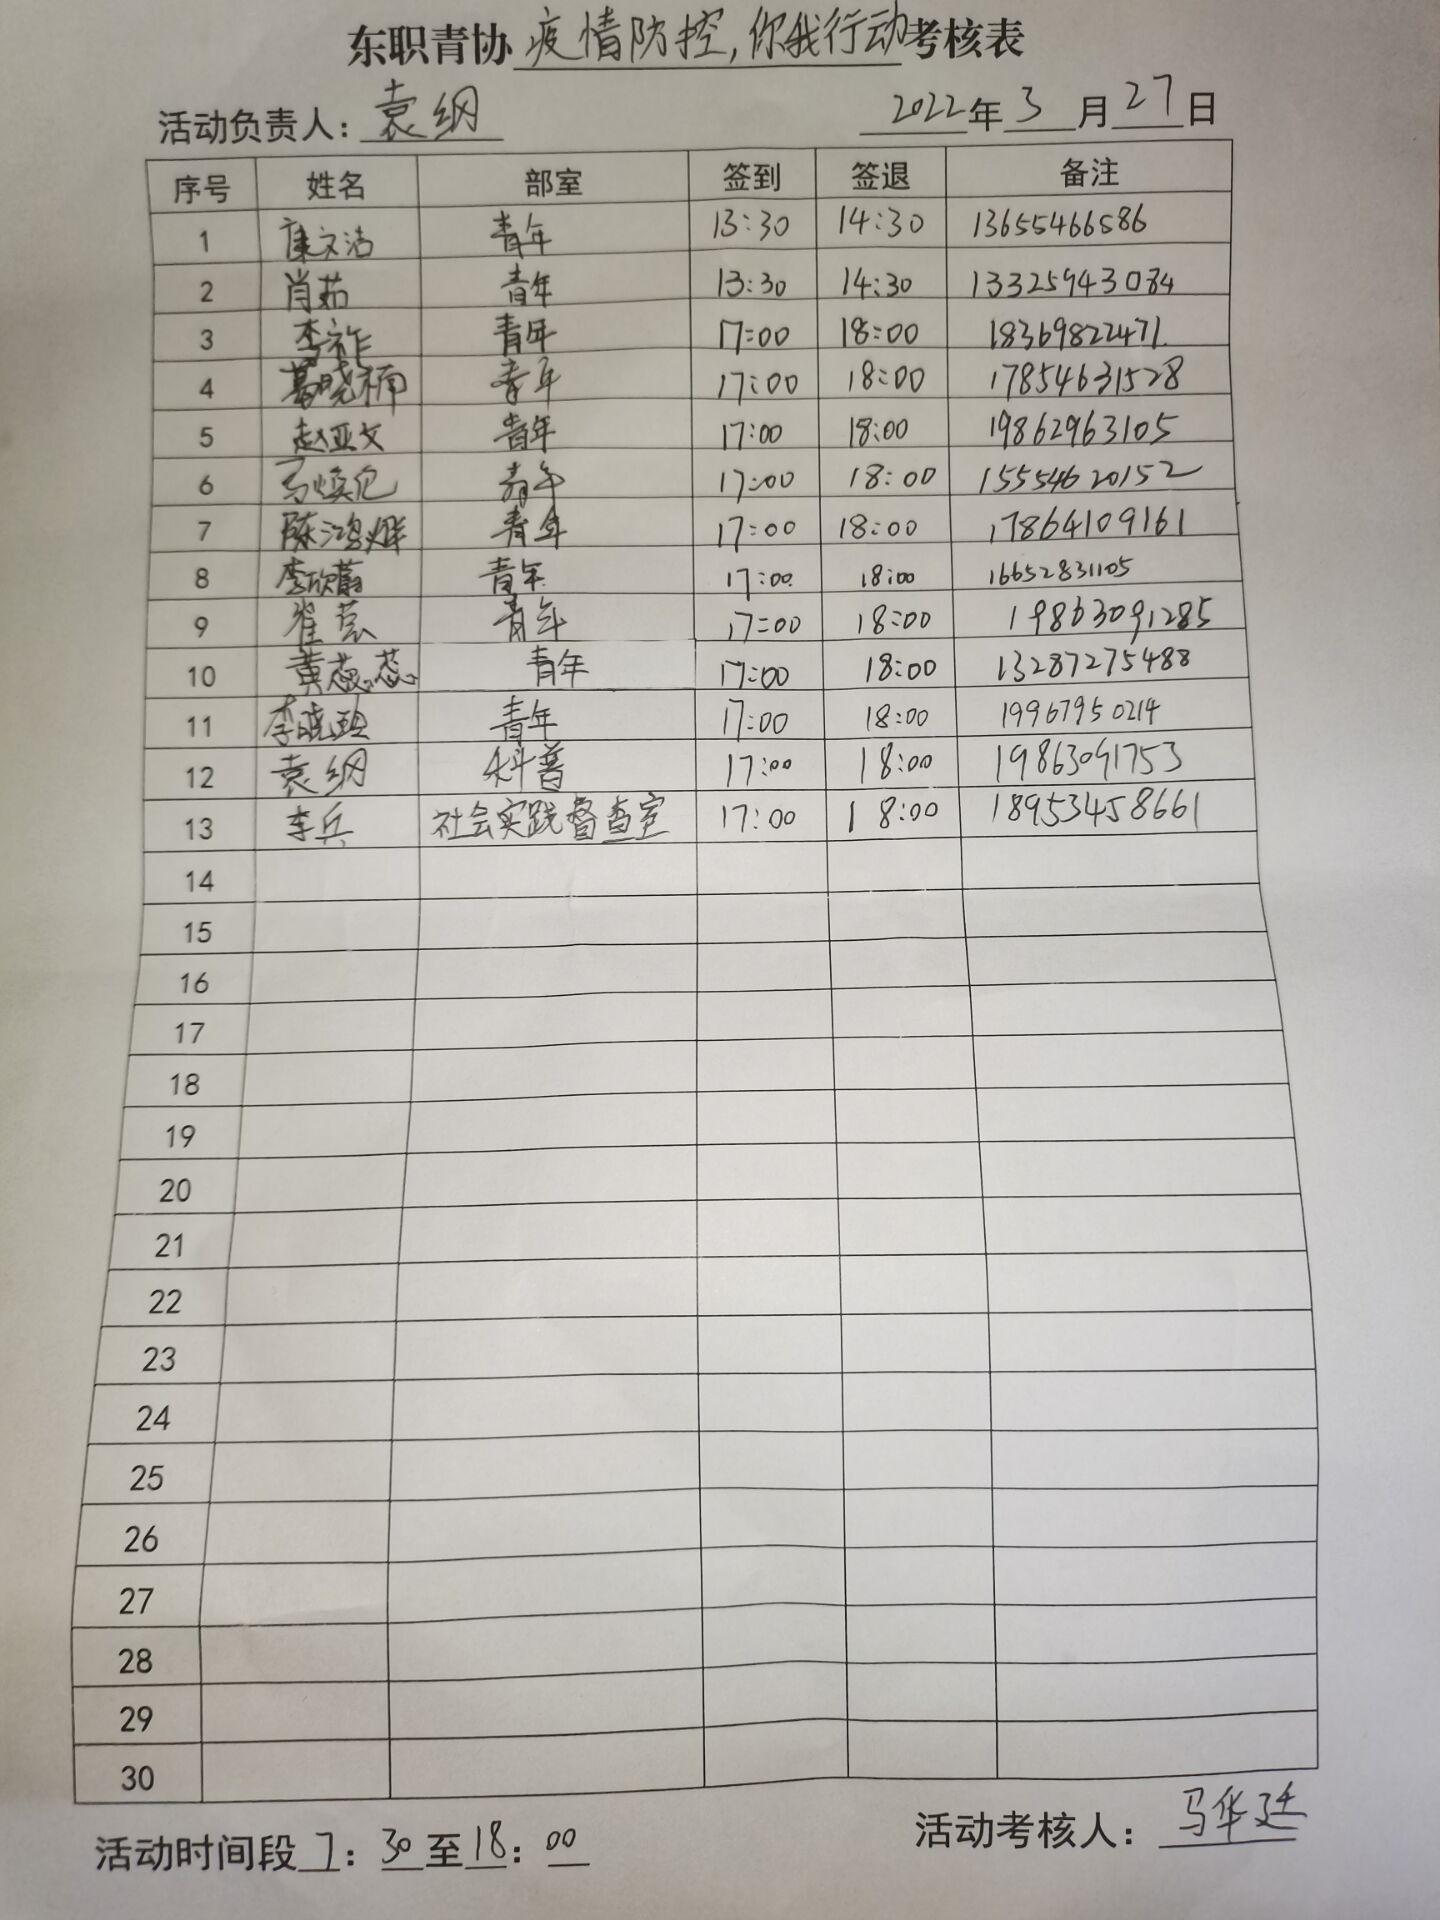 东职青协 疫情防控,你我行动 考核表
活动负责人: 袁纲 2022年3月27日
序号 姓名 部室 签到 签退 备注
1 康文洁 青年 13:30 14:30 13655466586
2 肖茹 青年 13:30 14:30 13325943084
3 李祚 青年 17:00 18:00 18369822471
4 葛晓楠 青年 17:00 18:00 17854631528
5 赵亚文 青年 17:00 18:00 19862963105
6 青年 17:00 18:00 15554620152
7 陈鸿烨 青年 17:00 18:00 17864109161
8 李欣蔚 青年 17:00 18:00 16652831105
9 青年 17:00 18:00 19863091285
10 黄蕊蕊 青年 17:00 18:00 13287275488
11 青年 17:00 18:00 19967950214
12 袁纲 科普 17:00 18:00 19863091753
13 李兵 社会实践督查室 17:00 18:00 18953458661
14
15
16
17
18
19
20
21
22
23
24
25
26
27
28
29
30
活动时间段7:30至18:00 活动考核人: 马华廷